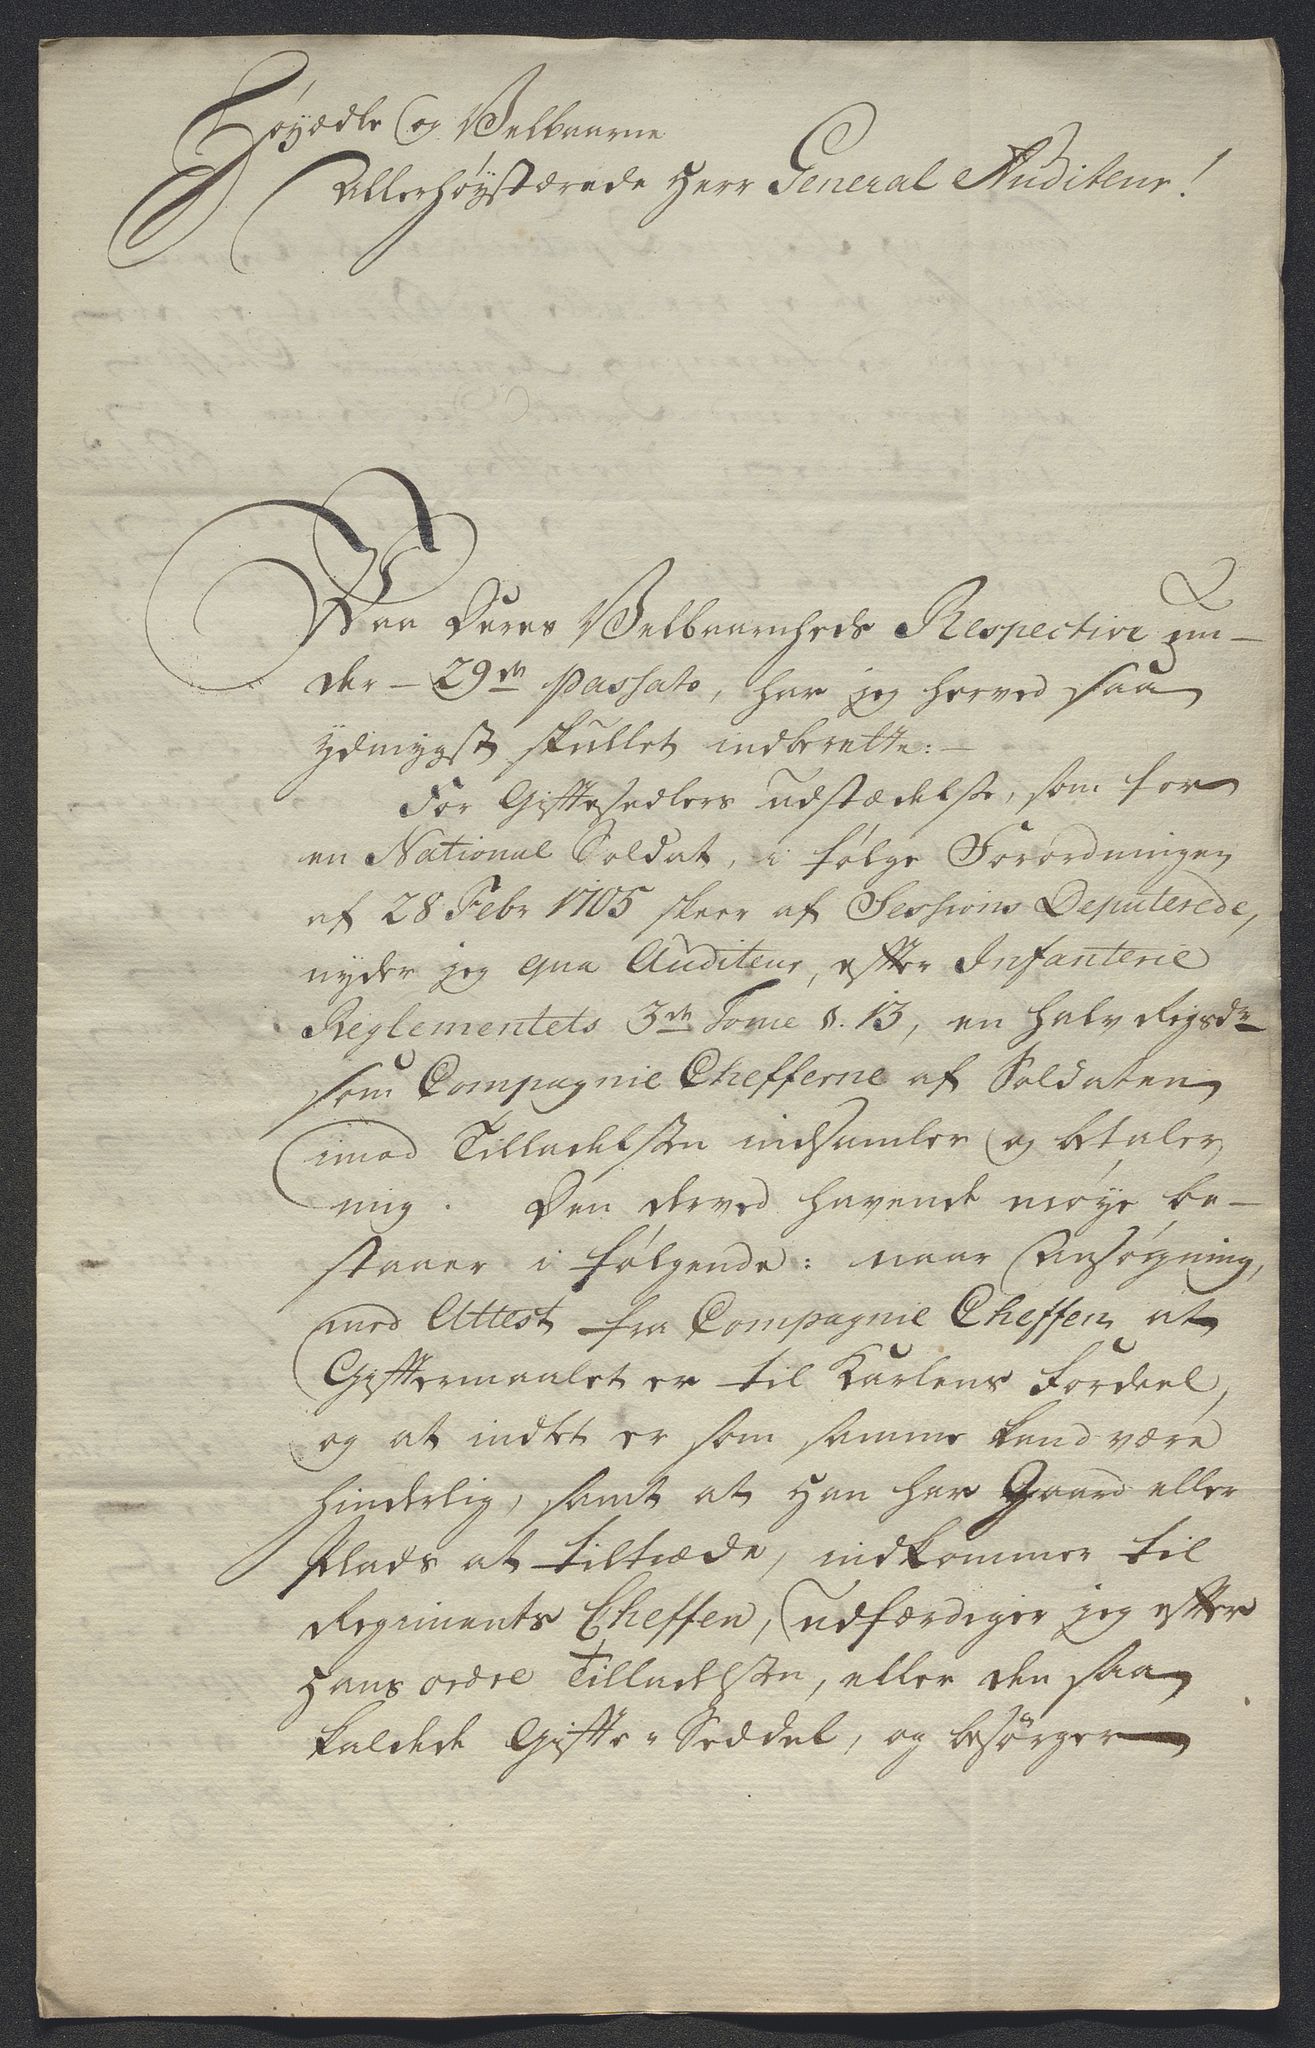 Höyædle og Velbaarne
Allerhöystærede Herr General Auditeur!
Paa Deres Velbaarenheds Respective un-
der - 29de passato, har jeg herved saa
ydmygst skullet indberette: -
For Giftesedlers Udstædelse, som for
en National Soldat, i fölge Forordningen
af 28 Febr 1705 skeer af Sessions Deputerede,
nyder jeg qua Auditeur, efter Infanterie
Reglementets 3de Tome §. 13, en halv Rigsdr
som Compagnie Chefferne af Soldaten
imod Tilladelsen indsamler og betaler
mig. Den derved havende möye be-
staaer i fölgende: naar Ansögning,
med Attest fra Compagnie Cheffen at
Giftermaalet er til Karlens Fordeel,
og at indtet er som samme kand være
hinderlig, samt at Han har Gaard eller
Plads at tiltræde, indkommer til
Regiments Cheffen, udfærdiger jeg efter
Hans ordre Tilladelsen, eller den saa
kaldede Gifte-Seddel, og besörger